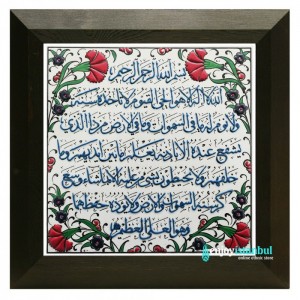 بسم الله الرحمن الرحيم
الله لا إله إلا هو الحي القيوم لا تأخذه سنة
ولا نوم له ما في السموات وما في الأرض من ذا الذي
يشفع عنده إلا بإذنه يعلم ما بين أيديهم وما
خلفهم ولا يحيطون بشيء من علمه إلا بما شاء وسع
كرسيه السموات والأرض ولا يؤده حفظهما
وهو العلي العظيم
istanbul
online ethnic store